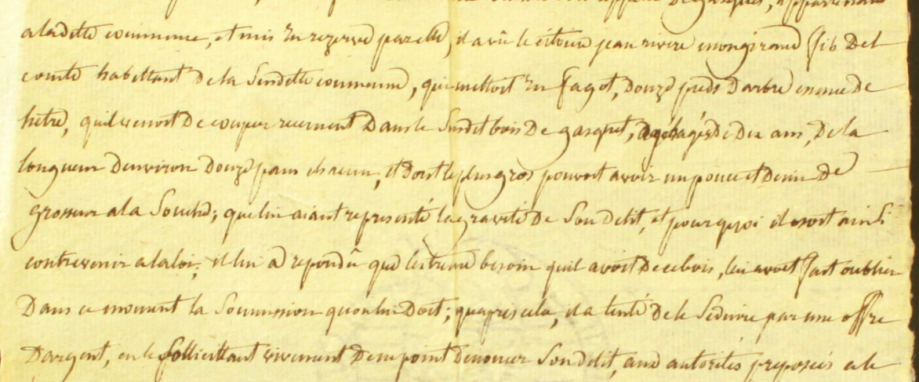 appartenant
a ladette commune, et mis en rezerve par elle, il a vû le citoien jean riviere mongirand fils Del
comte habittant De la Susdette commune, qui mettoit en fagot, Douze pieds D'arbre essence de
hetre, quil venoit De couper recement Dans le Susdit bois De gasquet, agés De Dix ans, De la
longueur denviron Douze pans chacun, et Dont le plus gros pouvoit avoir un pouce et Demi De
grosseur a la Souche; que lui aiant representé la gravité De Son Delit, et pourquoi il osoit ainsi
contrevenir a la loi; il lui a repondû que lextreme besoin quil avoit De ce bois, lui avoit fait oublier
Dans ce moment la Soumission quon lui Doit; quapres cela, il a tenté De le Seduire par une offre
Dargent, en le sollicittant vivement De ne point denoncer Son delit, aux autorités preposées a le